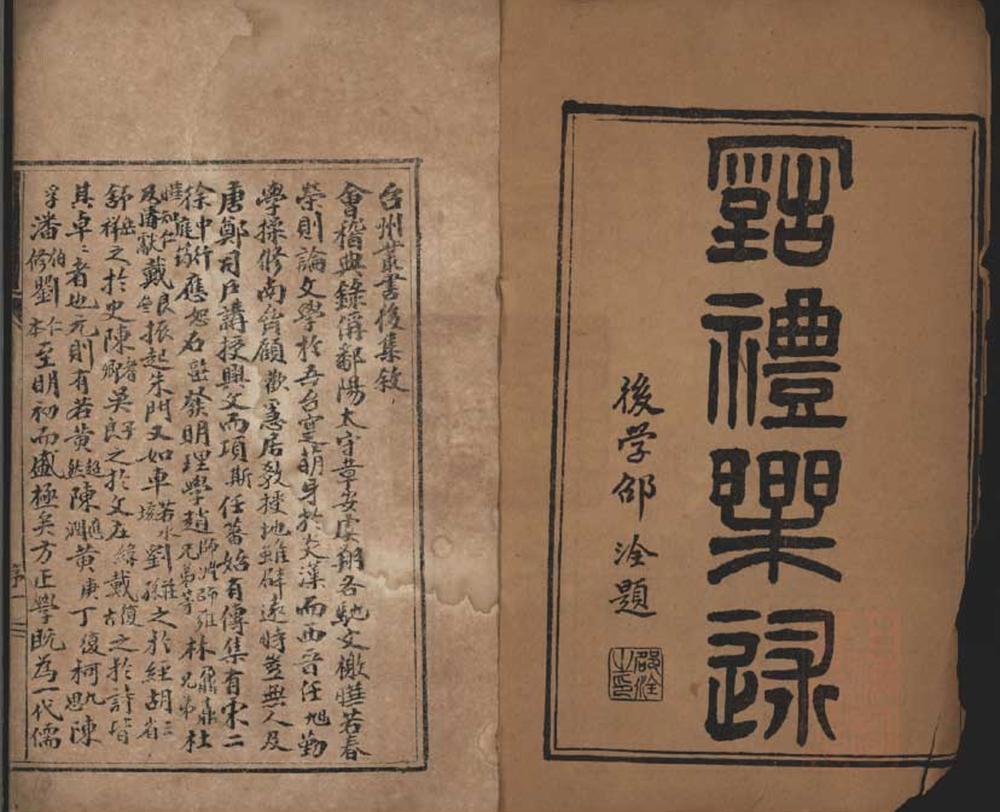 禮
後学邵洤題
邵洤之印
台州叢書後集敘
會稽典錄稱鄱陽太守章安虞翔各馳文檄曄若春
榮則論文學於吾台寔萌身於炎漢而西晉任旭勤
學操修南齊顧歡寓居教授地雖僻遠時豈無人及
唐鄭司戶講授興文而項斯任蕃始有傳集有宋二
徐中行庭筠應恕石發明理學趙師淵師雍兄弟等林鼐鼒兄弟杜
曄知仁及濬獻戴良齊振起朱門又如車若水劉莊孫之於經胡三省
舒岳祥之於史陳耆卿吳子良之於文左緯戴復古之於詩皆
其卓〻者也元則有若黄超然陳應潤黄庚丁復柯九思陳
孚潘伯修劉仁本至明初而盛極矣方正學既為一代儒
序一